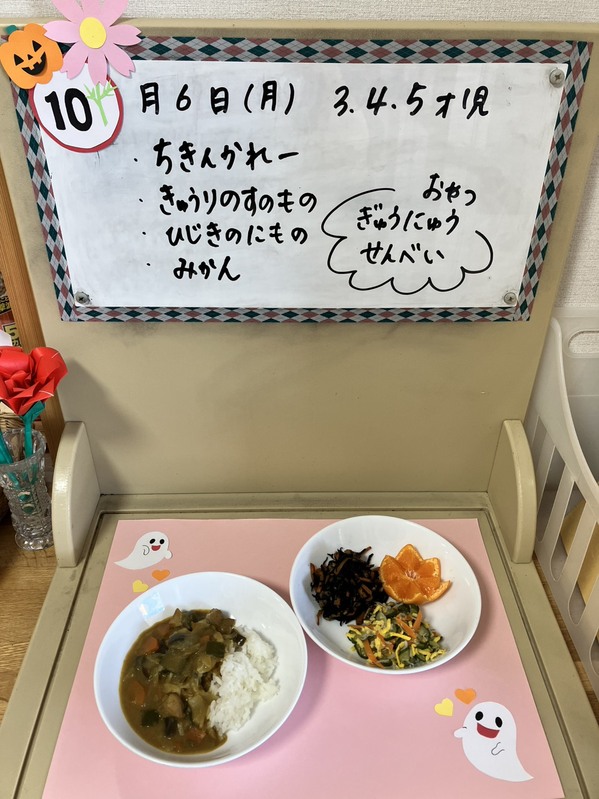 10月6日(月) 3.4.5才児
・ちきんかれー
・きゅうりのすのもの
・ひじきのにもの
・みかん
おやつ
ぎゅうにゅう
せんべい